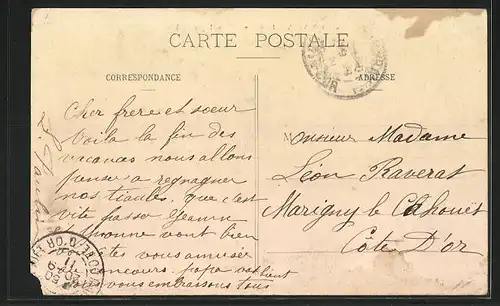 CARTE POSTALE
CORRESPONDANCE
ADRESSE
Cher frere et sœur
Voila la fin des
vacances nous allons
penser a regagner
nos que c'est
vite passé Jeanne
et Yvonne vont bien
vous amuser
papa va bient
vous embrassons tous
Monsieur Madame
Léon Raverat
Marigny le Cahouët
Côte D'or
COTE-D'OR